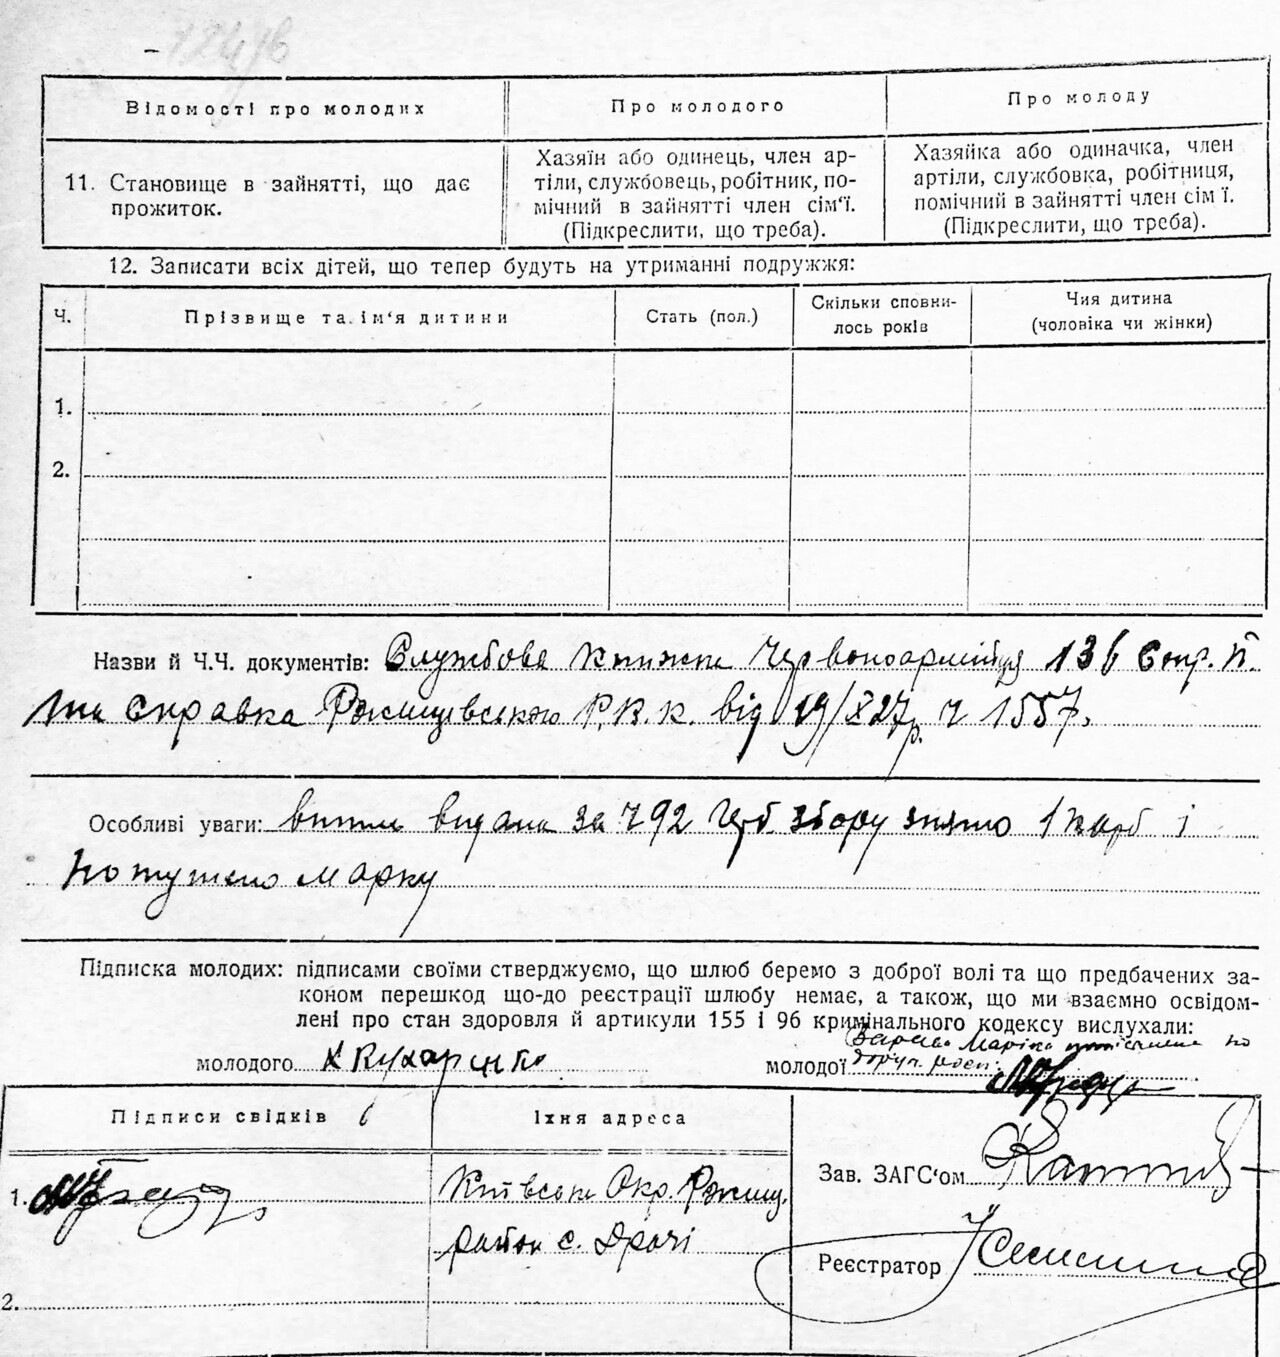 Відомості про молодих
Про молодого
Про молоду
11. Становище в зайнятті, що дає
прожиток.
Хазяїн або одинець, член ар-
тіли, службовець, робітник, по-
мічний в зайнятті член сім'ї.
(Підкреслити, що треба).
Хазяйка або одиначка, член
артіли, службовка, робітниця,
помічний в зайнятті член сім ї.
(Підкреслити, що треба).
12. Записати всіх дітей, що тепер будуть на утриманні подружжя:
Ч.
Прізвище та ім'я дитини
Стать (пол.)
Скільки сповни-
лось років
Чия дитина
(чоловіка чи жінки)
1.
2.
Назви й Ч.Ч. документів: Службова книжка Червоноармійця 136 Стр. п.
та справка Ржищевського Р.В.К. від 19/X 27р. ч 1557.
Особливі уваги: видана за ч 92 Герб. збору знято 1 карб і
погашено марку
Підписка молодих: підписами своїми стверджуємо, що шлюб беремо з доброї волі та що предбачених за-
коном перешкод що-до реєстрації шлюбу немає, а також, що ми взаємно освідом-
лені про стан здоровля й артикули 155 і 96 кримінального кодексу вислухали:
молодого Х Кухаренко
молодої
Підписи свідків
Їхня адреса
1.
Київська Окр. Ржищ.
район с. Драчі
2.
Зав. ЗАГС'ом
Реєстратор